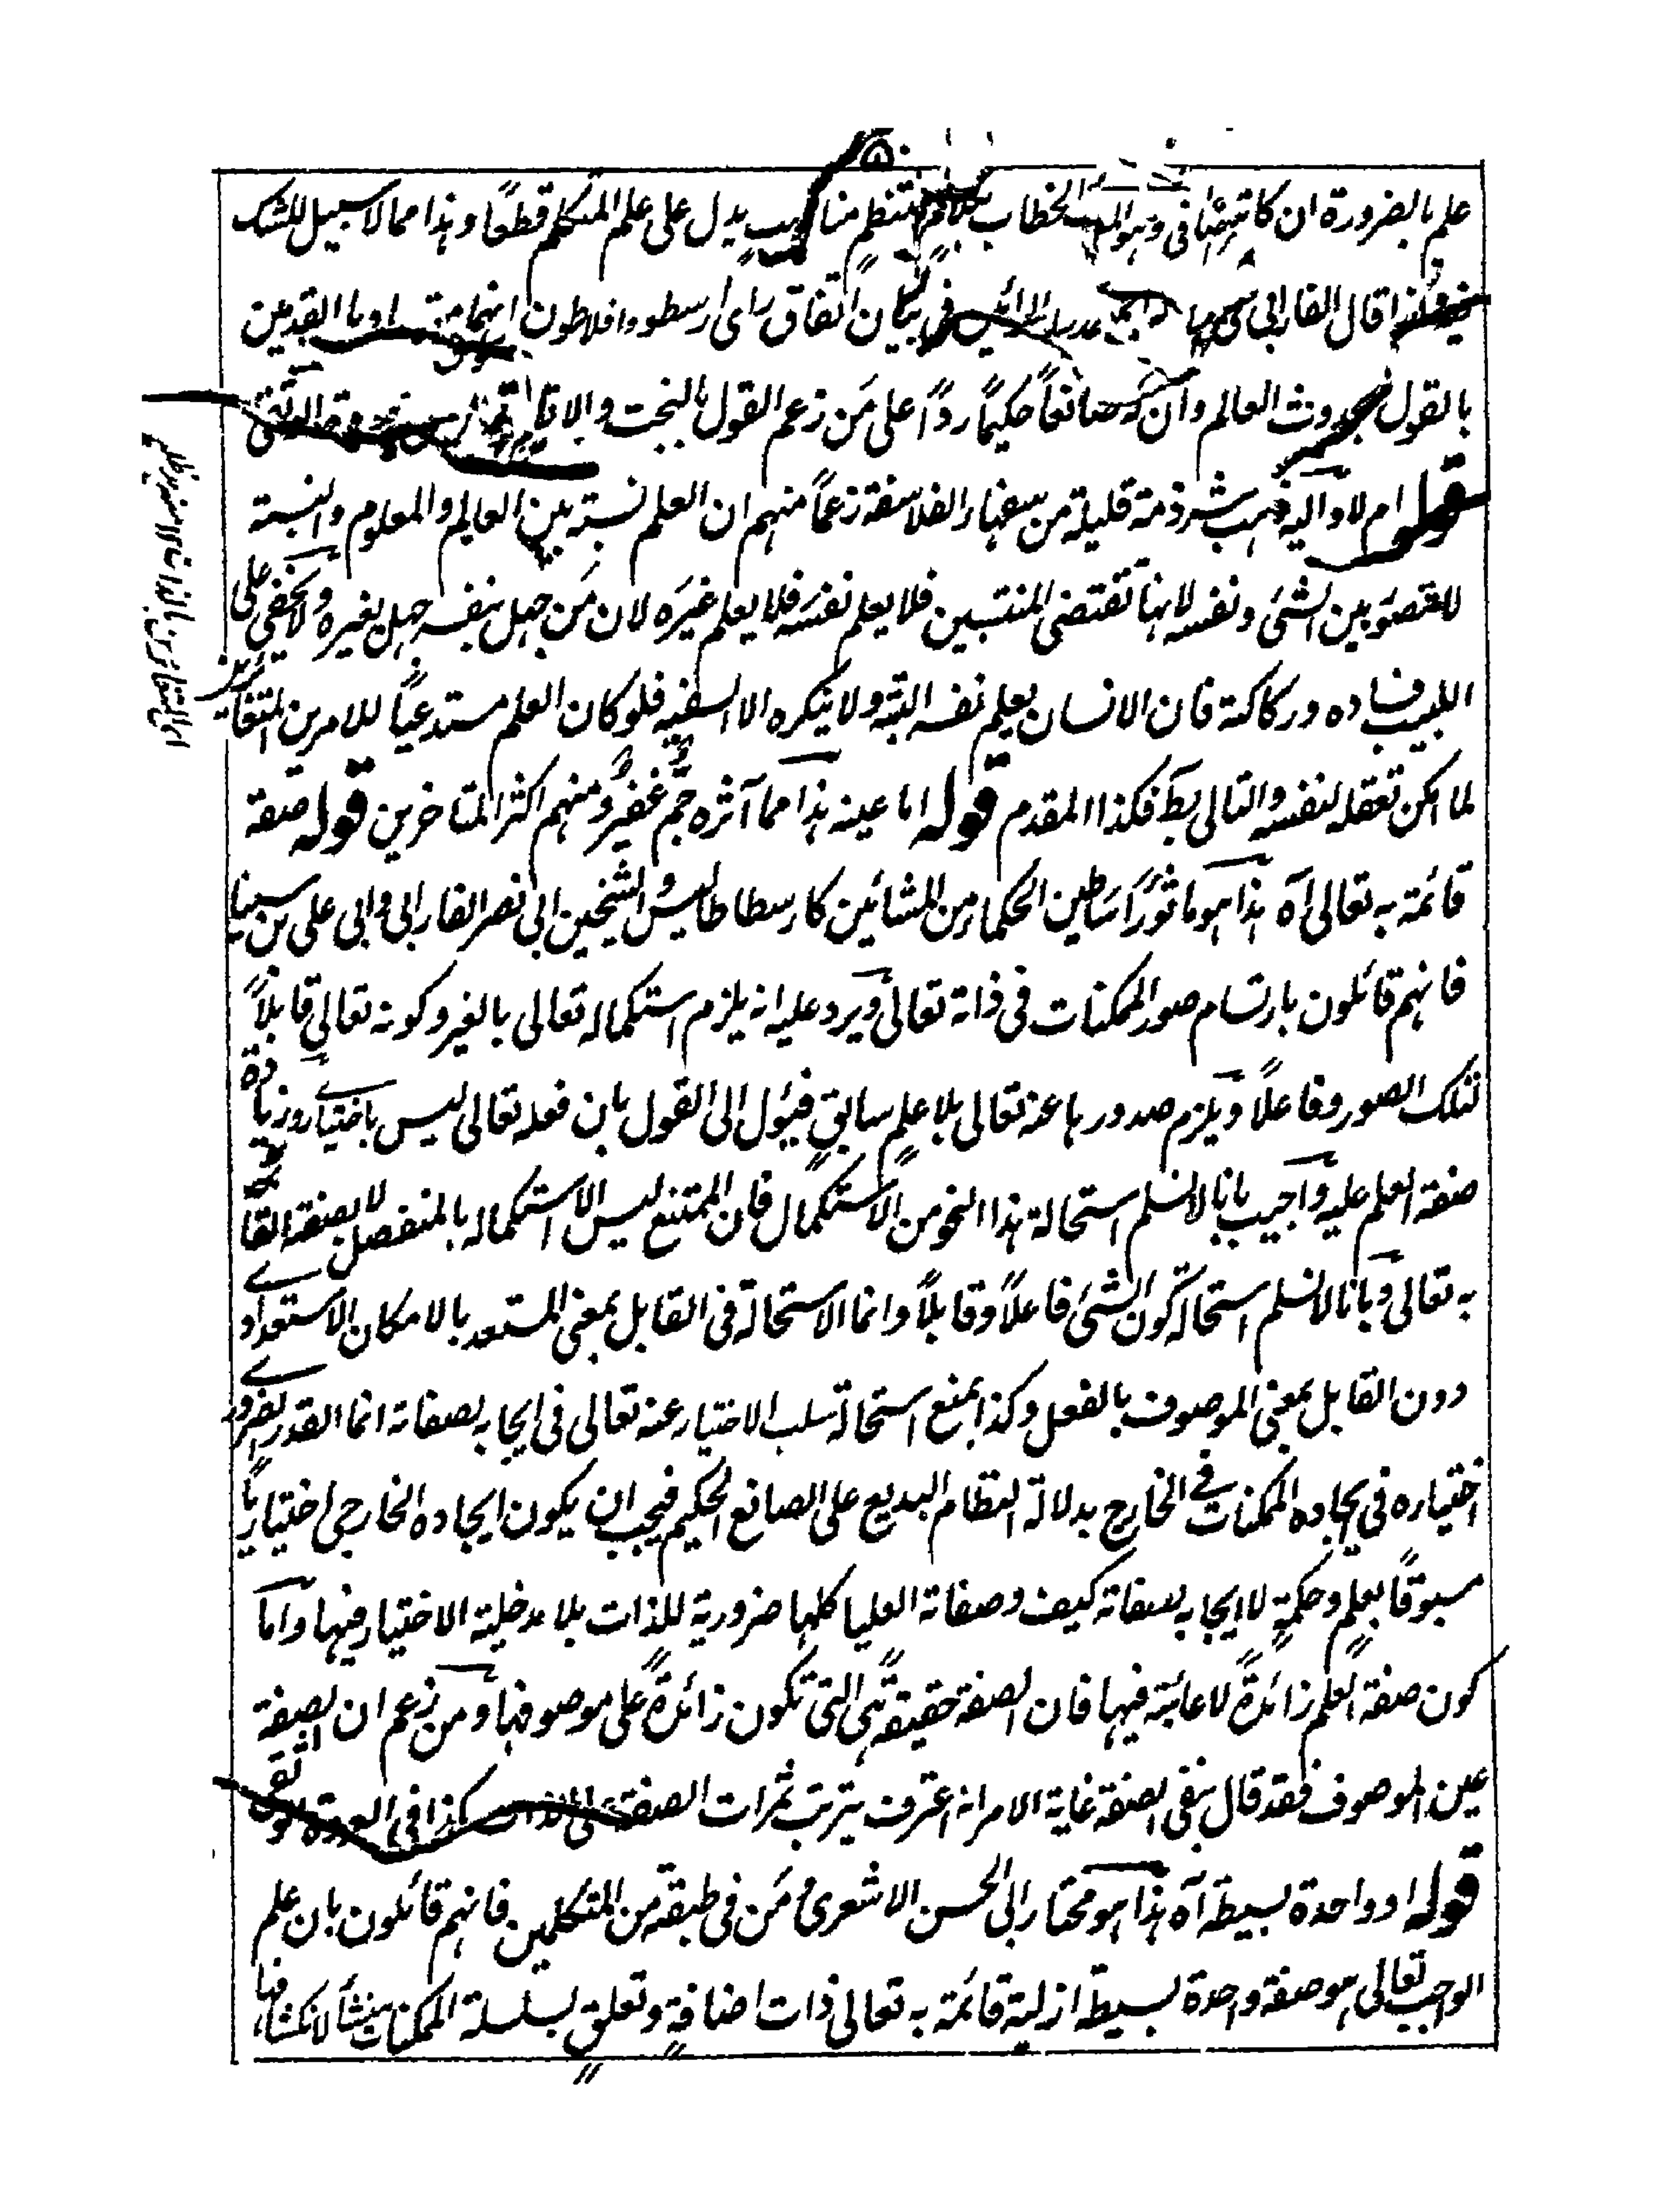 ۵
علم بالضرورة ان كاتبهما في الخطاب منتظم مناسب يدل على علم المتكلم قطعًا وهذا مما لا سبيل للشك
قال الفارابي في بيان اتفاق راى ارسطو وافلاطون انهما
بالقول بحدوث العالم وان له صانعًا حكيمًا ردًا على من زعم القول بالبخت والاتفاق
قوله ام لا واليه ذهب شرذمة قليلة من سفهاء الفلاسفة زعمًا منهم ان العلم نسبة بين العالم والمعلوم والنسبة
لا تتصور بين الشئ ونفسه لانها تقتضى المنتسبين فلا يعلم نفسه فلا يعلم غيره لان من جهل بنفسه جهل بغيره ولا يخفى على
اللبيب فساده وركاكته فان الانسان يعلم نفسه البتة ولا ينكره الا السفيه فلو كان العلم مستدعيًا للامرين المتغايرين
لما امكن تعقله لنفسه والتالى بط فكذا المقدم قوله اما عينه هذا مما آثره جم غفير ومنهم اكثر المتاخرين قوله صفة
قائمة به تعالى آه هذا هو ماثور اساطين الحكماء من المشائين كارسطاطاليس والشيخين ابى نصر الفارابى وابى على بن سينا
فانهم قائلون بارتسام صور الممكنات فى ذاته تعالى ويرد عليه انه يلزم استكماله تعالى بالغير وكونه تعالى قابلًا
لتلك الصور وفاعلًا ويلزم صدورها عنه تعالى بلا علم سابق فيئول الى القول بان فعله تعالى ليس باختياره وزيادة
صفة العلم عليه واجيب بانا لا نسلم استحالة هذا النحو من الاستكمال فان الممتنع ليس الا استكماله بالمنفصل لا بصفة القائمة
به تعالى وبانا لا نسلم استحالة كون الشئ فاعلًا وقابلًا وانما الاستحالة فى القابل بمعنى المستعد بالامكان الاستعدادى
دون القابل بمعنى الموصوف بالفعل وكذا يمنع استحالة سلب الاختيار عنه تعالى فى ايجابه لصفاته انما القدر الضرورى
اختياره فى ايجاده الممكنات فى الخارج بدلالة النظام البديع على الصانع الحكيم فيجب ان يكون ايجاده الخارجى اختياريًا
مسبوقًا بعلم وحكمة لا ايجابه بصفاته كيف وصفاته العليا كلها ضرورية للذات بلا مدخلية الاختيار فيها واما
كون صفة العلم زائدة لا عائبة فيها فان الصفة حقيقة هى التى تكون زائدة على موصوفها ومن زعم ان الصفة
عين الموصوف فقد قال بنفى الصفة غاية الامر انه اعترف بترتب ثمرات الصفة على الذات كذا فى العروة الوثقى
قوله او واحدة بسيطة آه هذا هو مختار ابى الحسن الاشعرى ومن فى طبقة من المتكلمين فانهم قائلون بان علم
الواجب تعالى هو صفة واحدة بسيطة ازلية قائمة به تعالى ذات اضافة وتعلق بسلسلة الممكنات منشأ لانكشافها